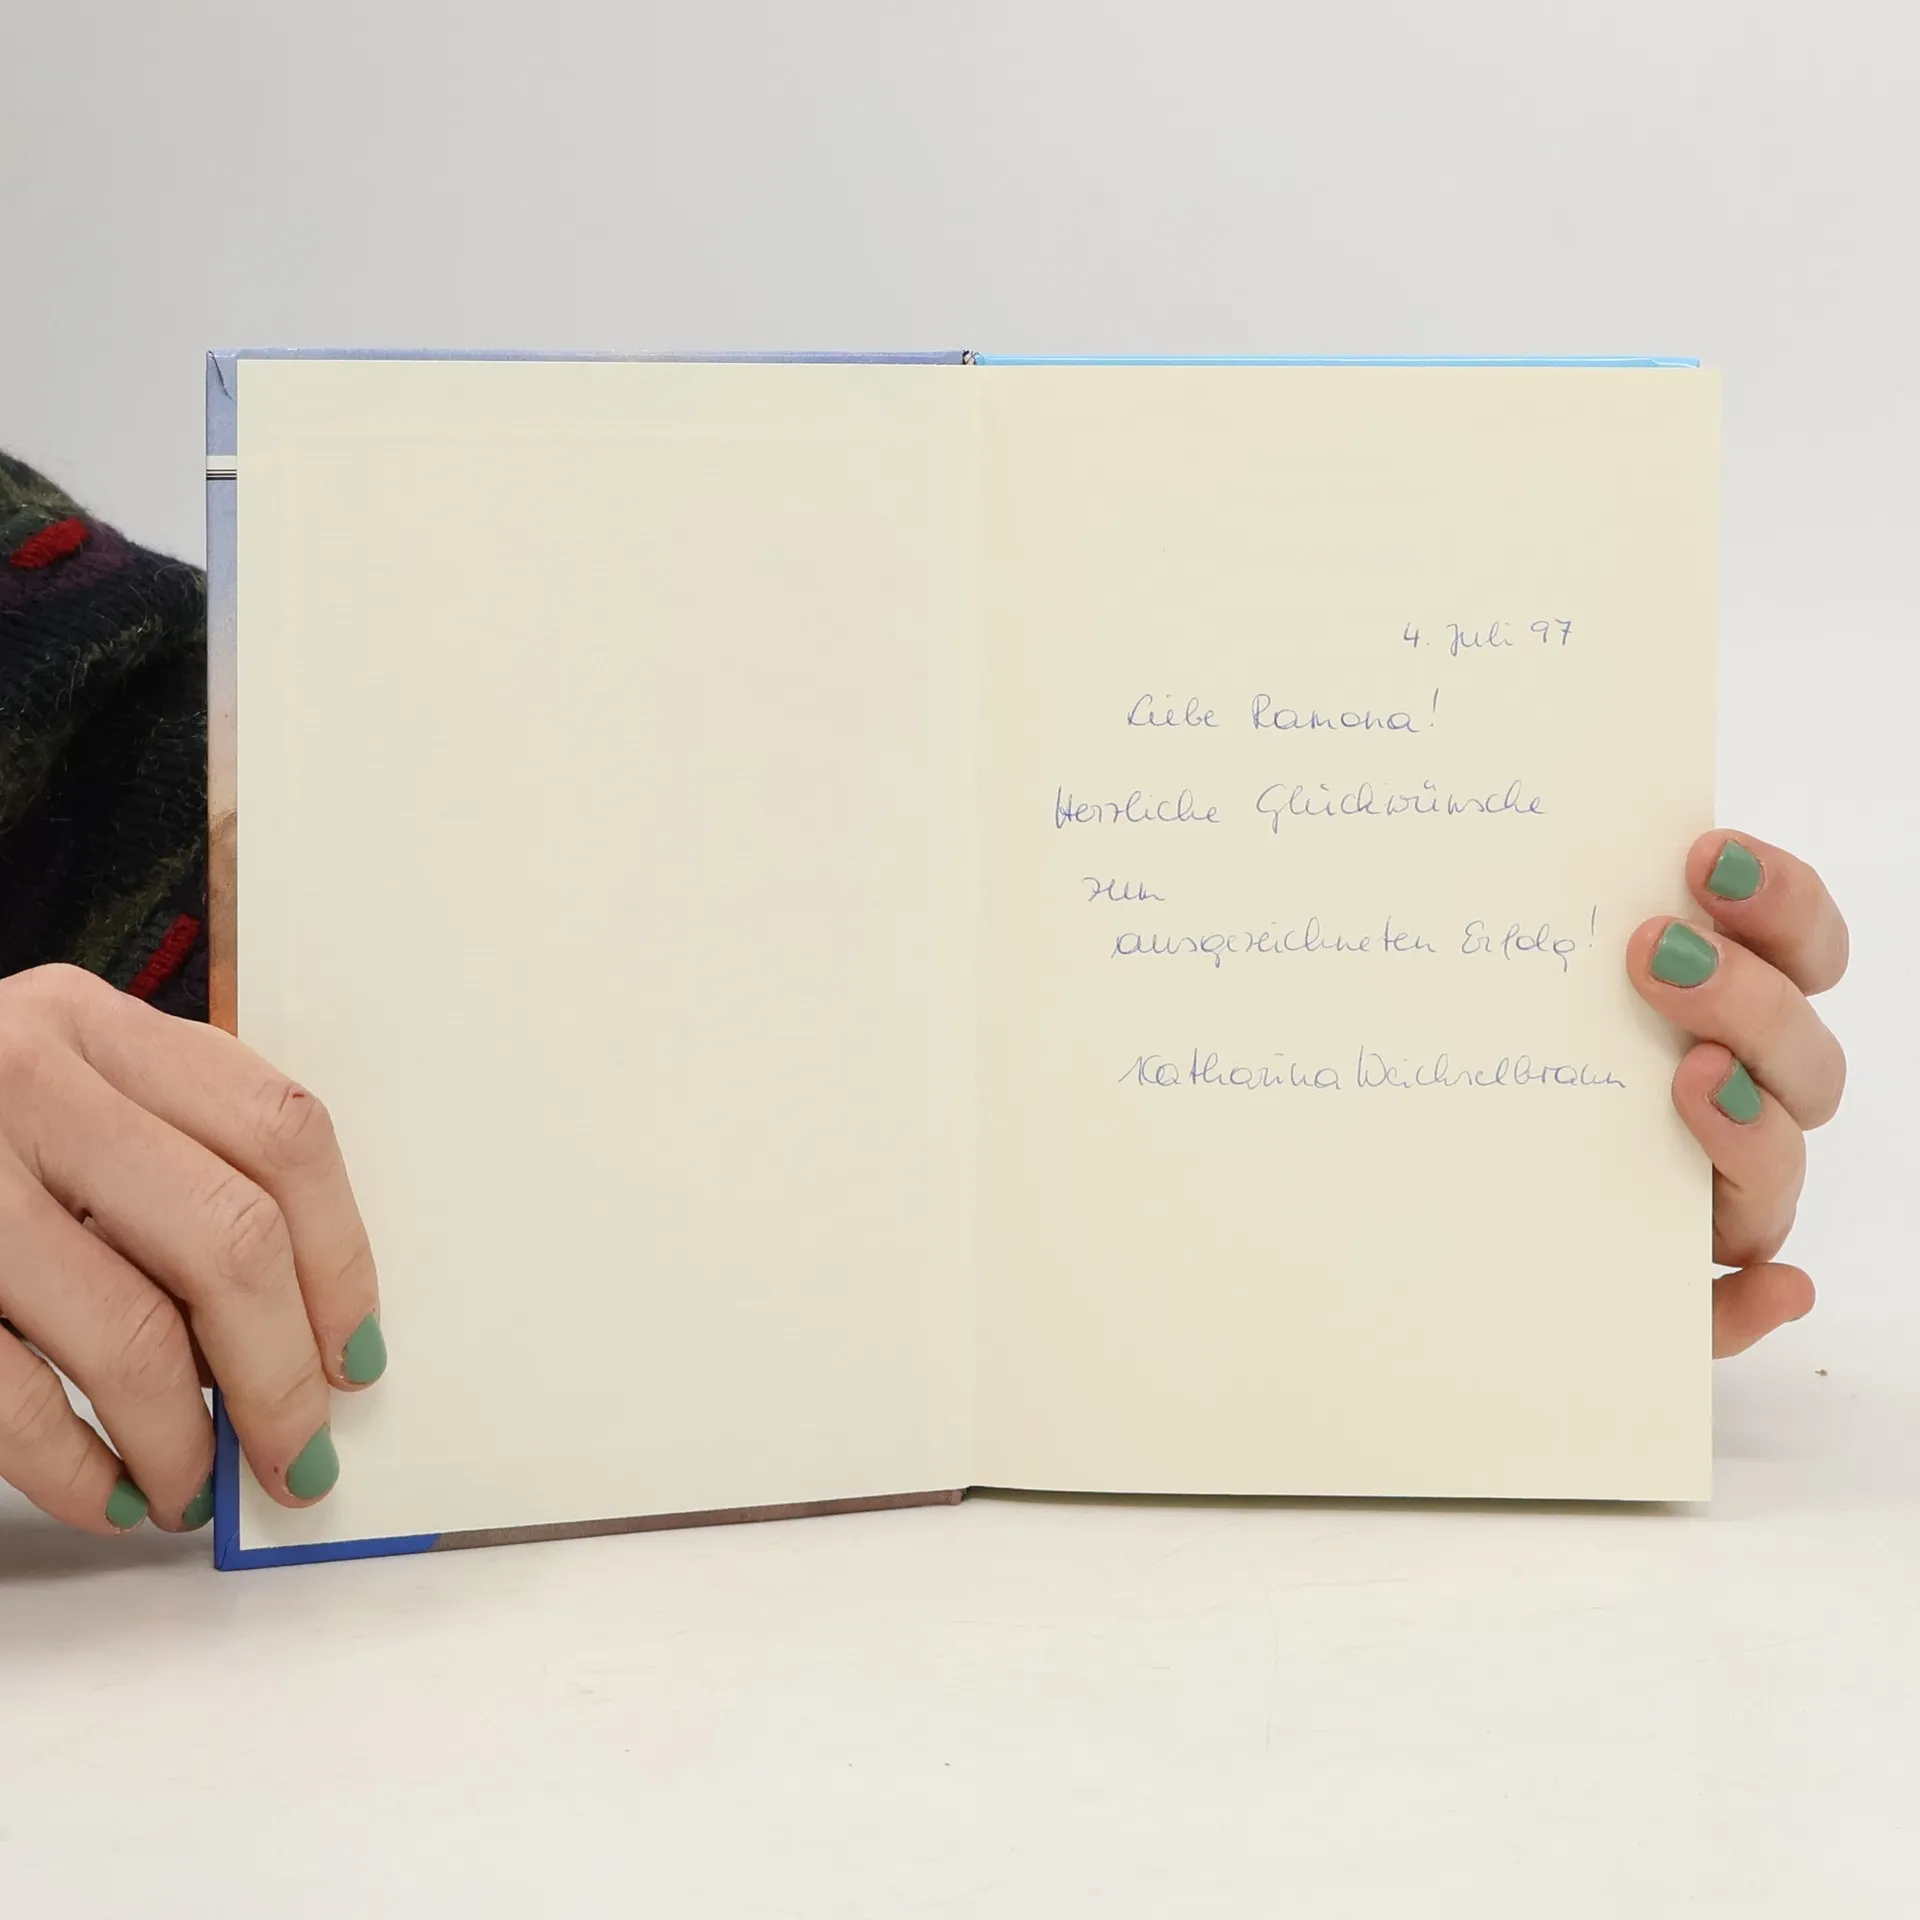 4. Juli 97
Liebe Ramona!
Herzliche Glückwünsche
zum
ausgezeichneten Erfolg!
Katharina Weichselbraun